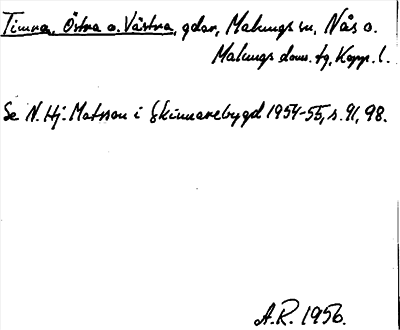 Timra, Östra o. Västra, gdar, Malungs sn, Nås o.
Malungs doms. tg, Kopp. l.
Se N. Hj. Matsson i Skinnarebygd 1954-55, s. 91, 98.
A.R. 1956.